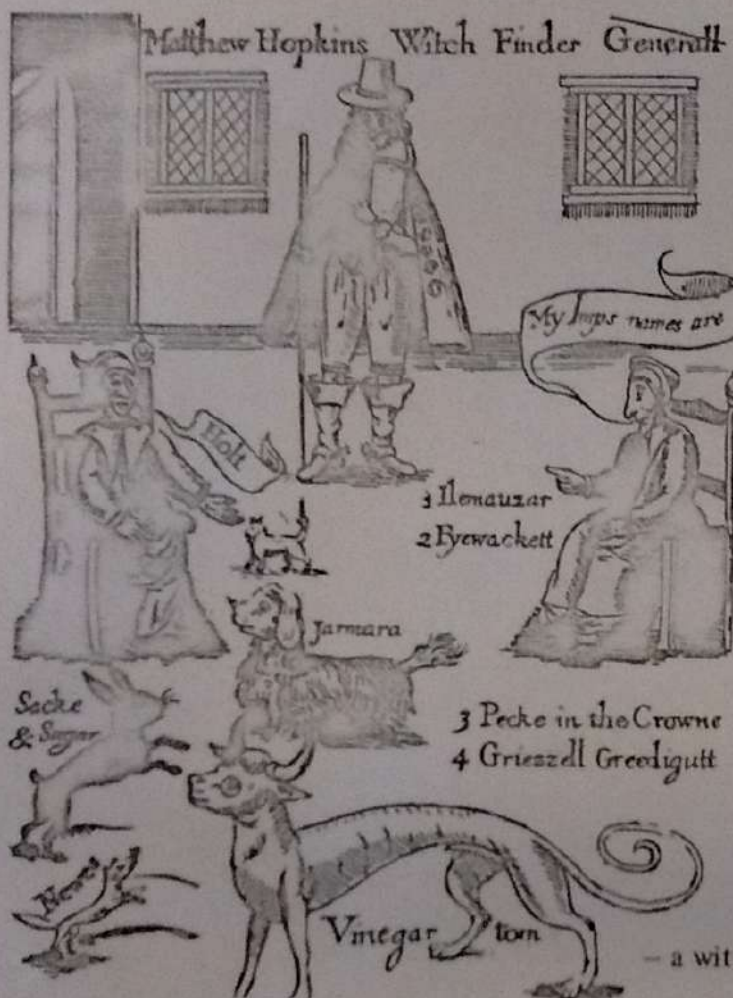 Matthew Hopkins Witch Finder Generall
My Imps names are
Holt
1 Ilemauzar
2 Pyewackett
Jarmara
Sacke
& Sugar
3 Pecke in the Crowne
4 Griezzell Greedigutt
Newes
Vinegar tom
– a wit